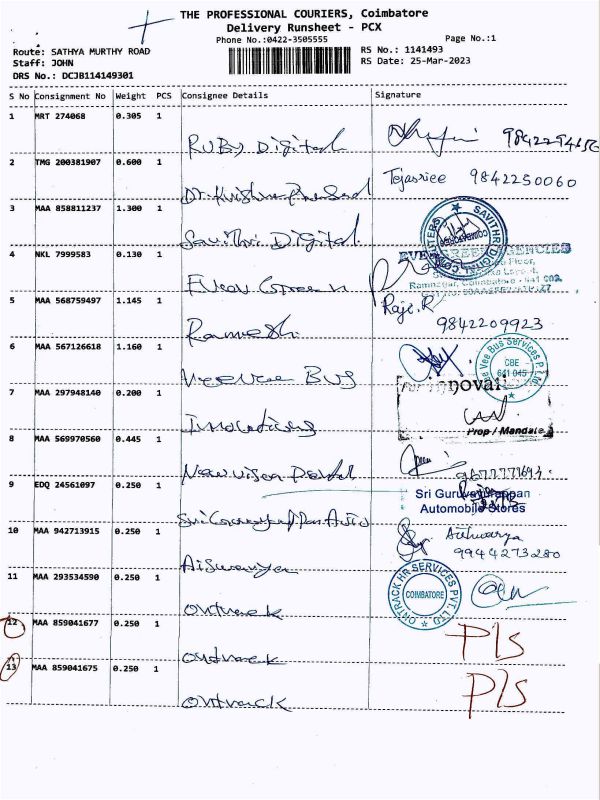 THE PROFESSIONAL COURIERS, Coimbatore
Delivery Runsheet - PCX
Phone No.:0422-3505555 Page No.:1
Route: SATHYA MURTHY ROAD RS No.: 1141493
Staff: JOHN RS Date: 25-Mar-2023
DRS No.: DCJB114149301
S No Consignment No Weight PCS Consignee Details Signature
1 MRT 274068 0.305 1
Ruby Digital
2 TMG 200381907 0.600 1
Tejasriee 9842250060
3 MAA 858811237 1.300 1
Savithri Digital
4 NKL 7999583 0.130 1
EVERGREEN AGENCIES
Ever Green
5 MAA 568759497 1.145 1
Raje.R
9842209923
Ramesh
6 MAA 567126618 1.160 1
Vee Bus Services P. Ltd
CBE
641 045
VeeVee Bus
7 MAA 297948140 0.200 1
For Innovati
Prop / Mandate
8 MAA 569970560 0.445 1
New Vision Dental
9 EDQ 24561097 0.250 1
Sri Guruvayurappan
Automobile Stores
10 MAA 942713915 0.250 1
Aishwarya
9944273280
Aiswarya
11 MAA 293534590 0.250 1
ONTRACK HR SERVICES PVT LTD
COIMBATORE
Ontrack
12 MAA 859041677 0.250 1
Pls
Ontrack
13 MAA 859041675 0.250 1
Pls
Ontrack